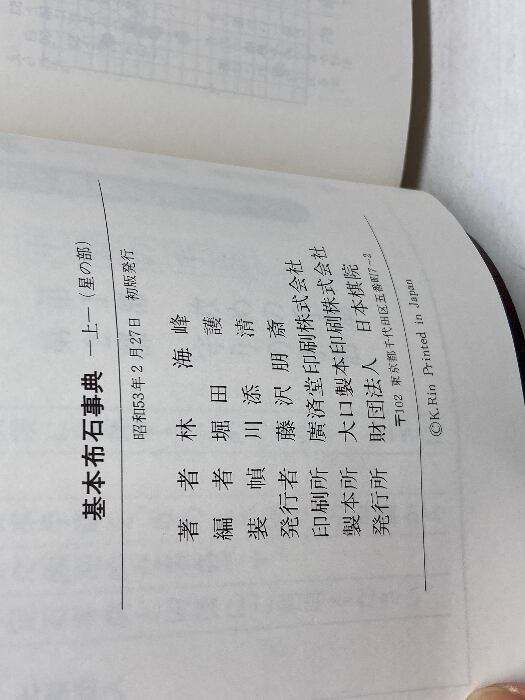 基本布石事典 ー上ー(星の部)
昭和53年2月27日 初版発行
著者 林海峰
編者 堀田護
装幀 川添清
発行者 藤沢朋斎
印刷所 廣済堂印刷株式会社
製本所 大口製本印刷株式会社
発行所 財団法人 日本棋院
〒102 東京都千代田区五番町7-2
©K.Rin Printed in Japan